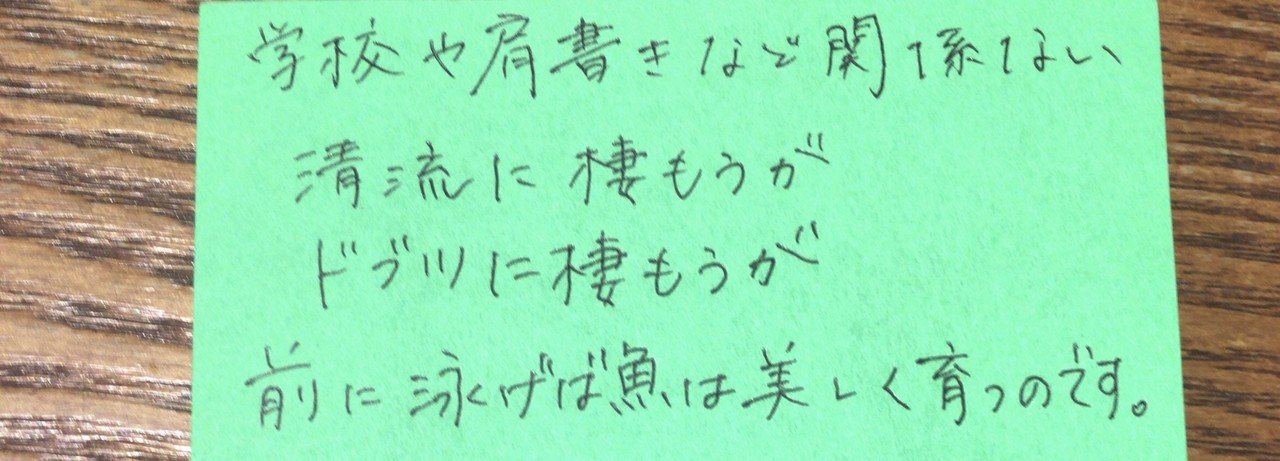 学校や肩書きなど関係ない
清流に棲もうが
ドブ川に棲もうが
前に泳げば魚は美しく育つのです。